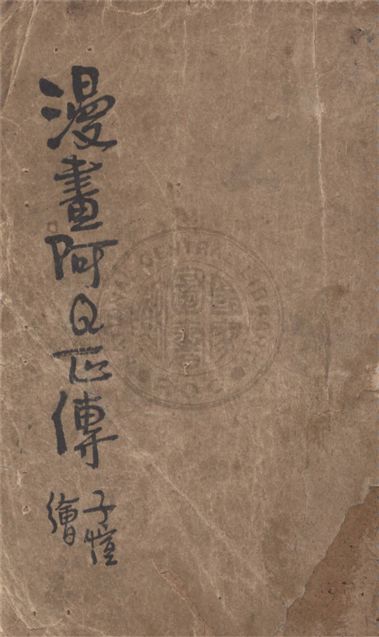 漫畫阿Q正傳
子愷
繪
NATIONAL CENTRAL LIBRARY